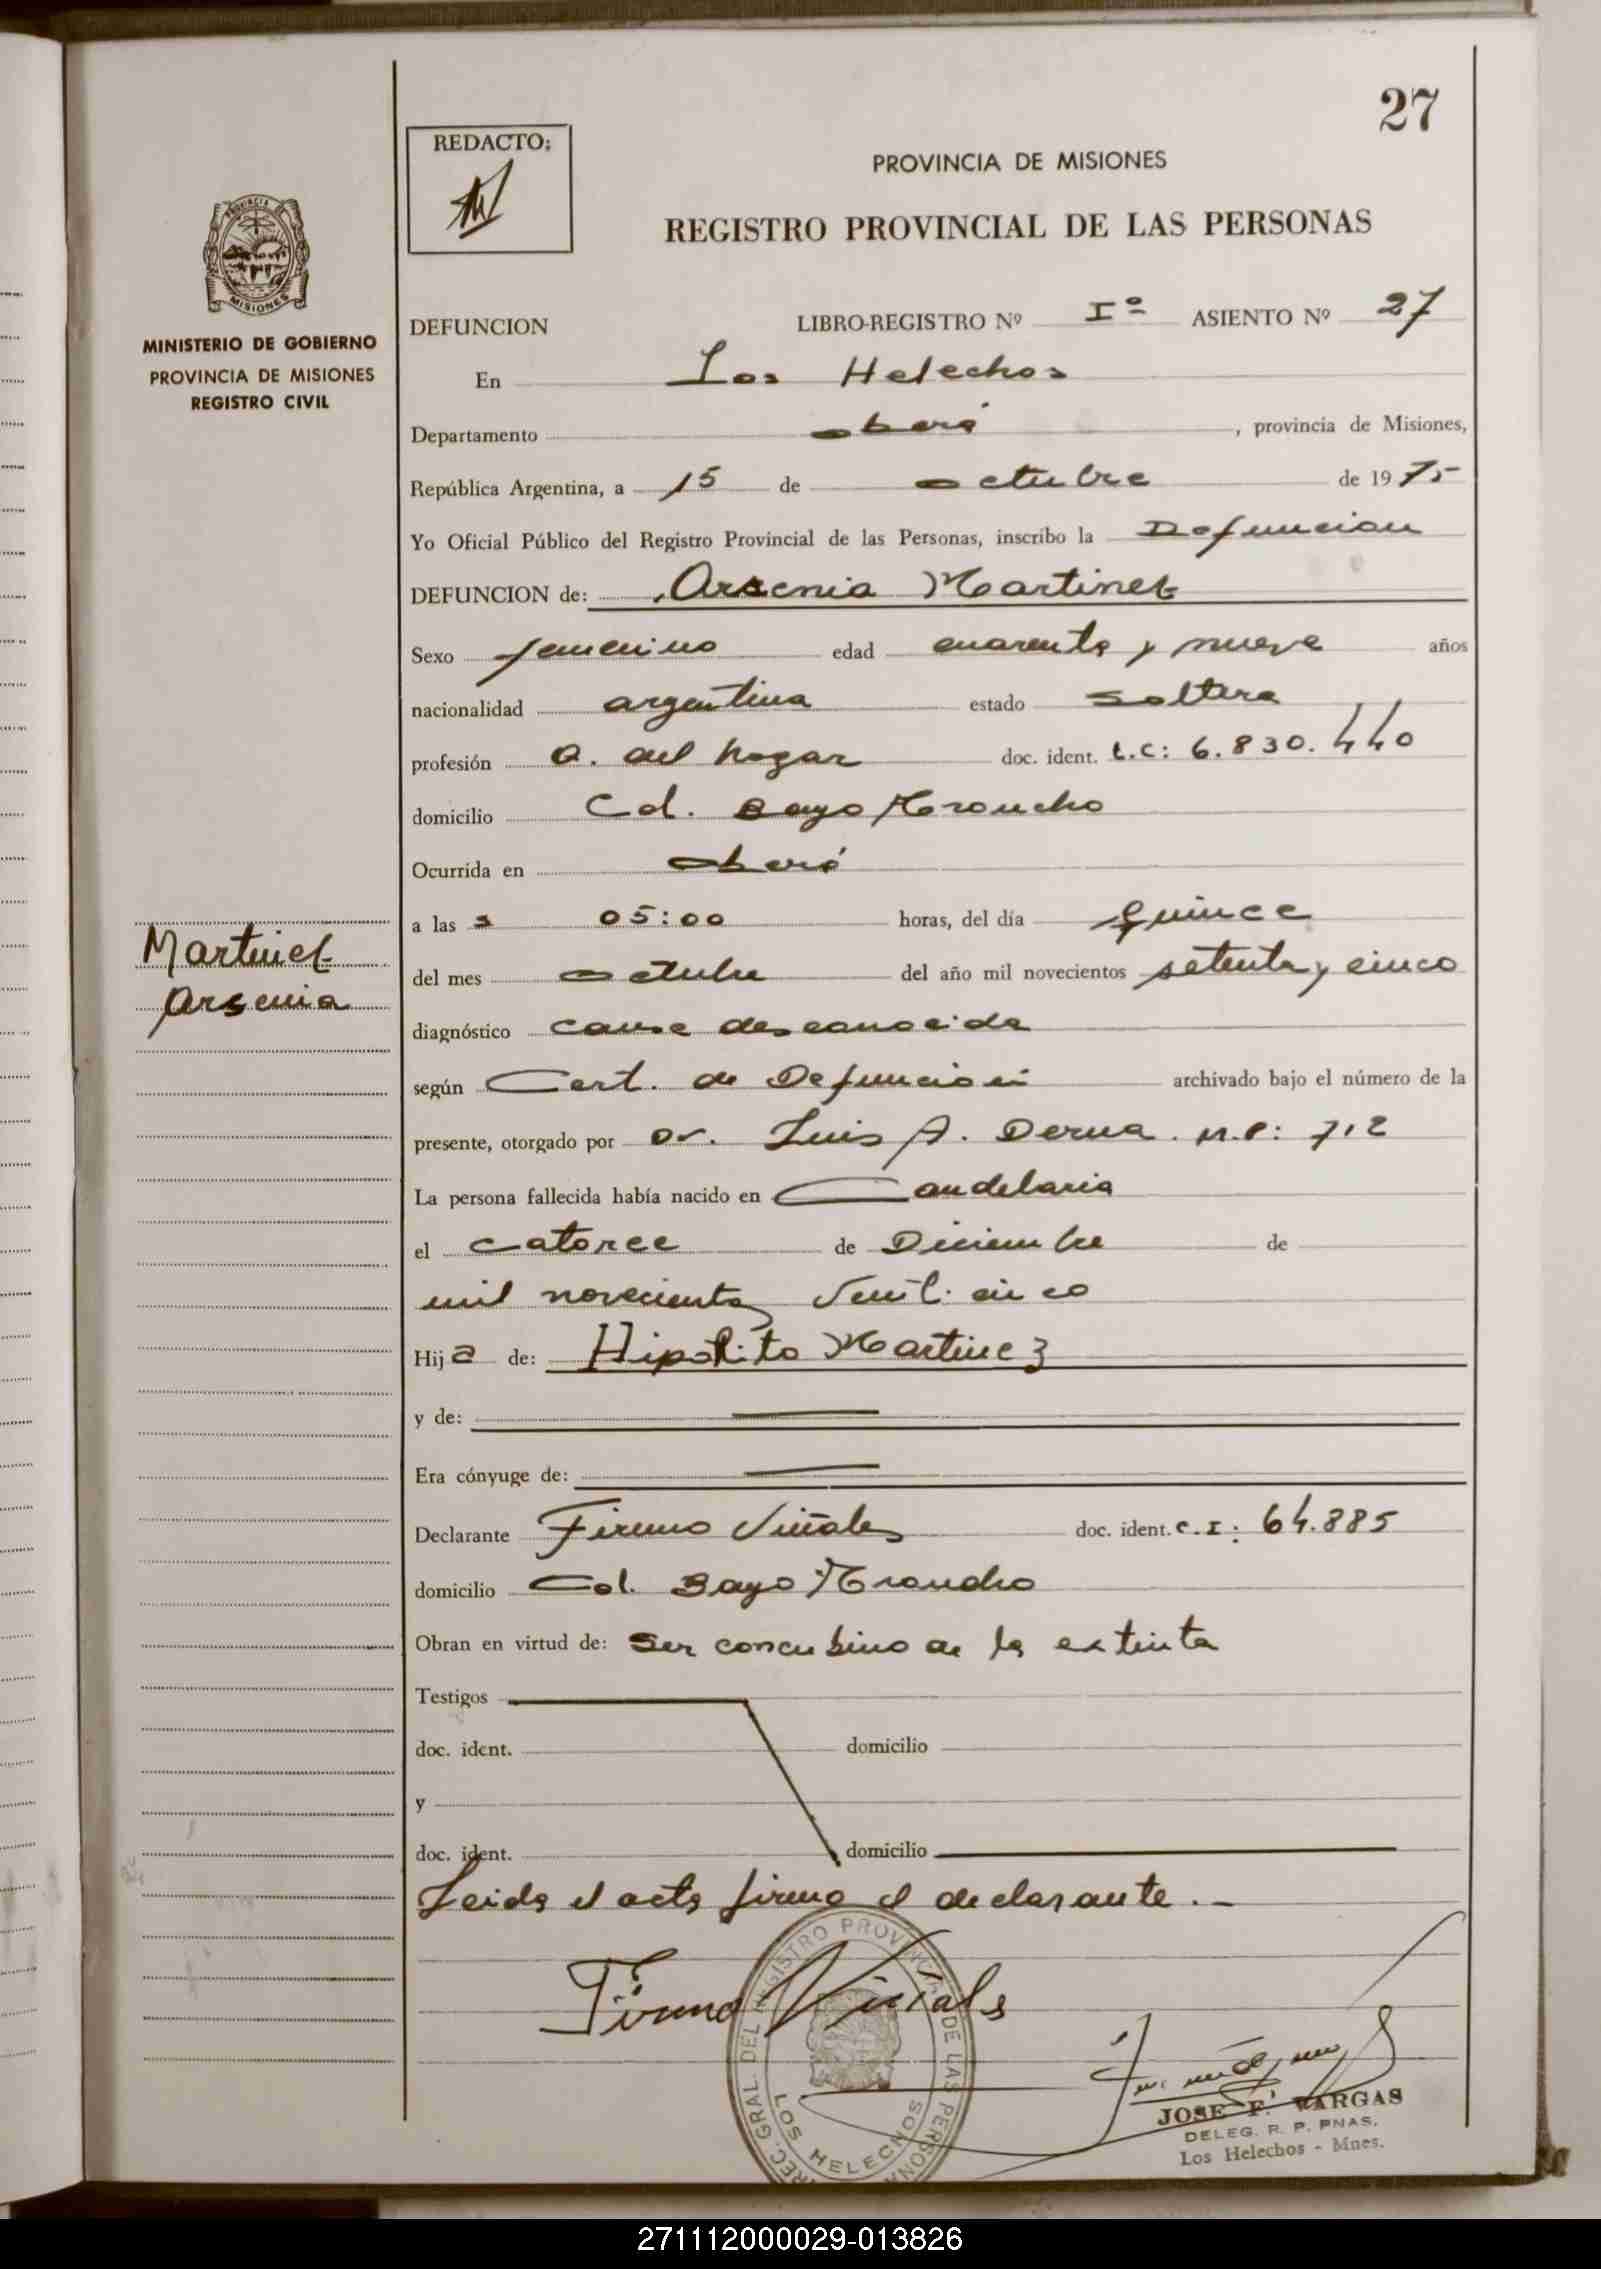 27
REDACTO:
PROVINCIA DE MISIONES
REGISTRO PROVINCIAL DE LAS PERSONAS
MISIONES
MINISTERIO DE GOBIERNO
PROVINCIA DE MISIONES
REGISTRO CIVIL
DEFUNCION LIBRO-REGISTRO Nº Iº ASIENTO Nº 27
En Los Helechos
Departamento oberá, provincia de Misiones,
República Argentina, a 15 de octubre de 1975
Yo Oficial Público del Registro Provincial de las Personas, inscribo la Defuncion
DEFUNCION de: Arsenia Martinez
Sexo femenino edad cuarenta y nueve años
nacionalidad argentina estado soltera
profesión a. del hogar doc. ident. L.C: 6.830.440
domicilio Col. Bayo Troncho
Ocurrida en oberá
a las 05:00 horas, del día quince
del mes octubre del año mil novecientos setenta y cinco
diagnóstico causa desconocida
según Cert. de Defuncion archivado bajo el número de la
presente, otorgado por Dr. Luis A. Derna. M.P: 712
La persona fallecida había nacido en Candelaria
el catorce de Diciembre de
mil novecientos Veinticinco
Hija de: Hipolito Martinez
y de:
Era cónyuge de:
Declarante Firmo Viñales doc. ident. C.I: 64.885
domicilio Col. Bayo Troncho
Obran en virtud de: Ser concubino de la extinta
Testigos
doc. ident. domicilio
y
doc. ident. domicilio
Leida el acta firma el declarante.-
Martinez
Arsenia
Firmo Viñals
REC. GRAL. DEL REGISTRO PROVINCIAL DE LAS PERSONAS
LOS HELECHOS
JOSE F. VARGAS
DELEG. R. P. PNAS.
Los Helechos - Mnes.
271112000029-013826